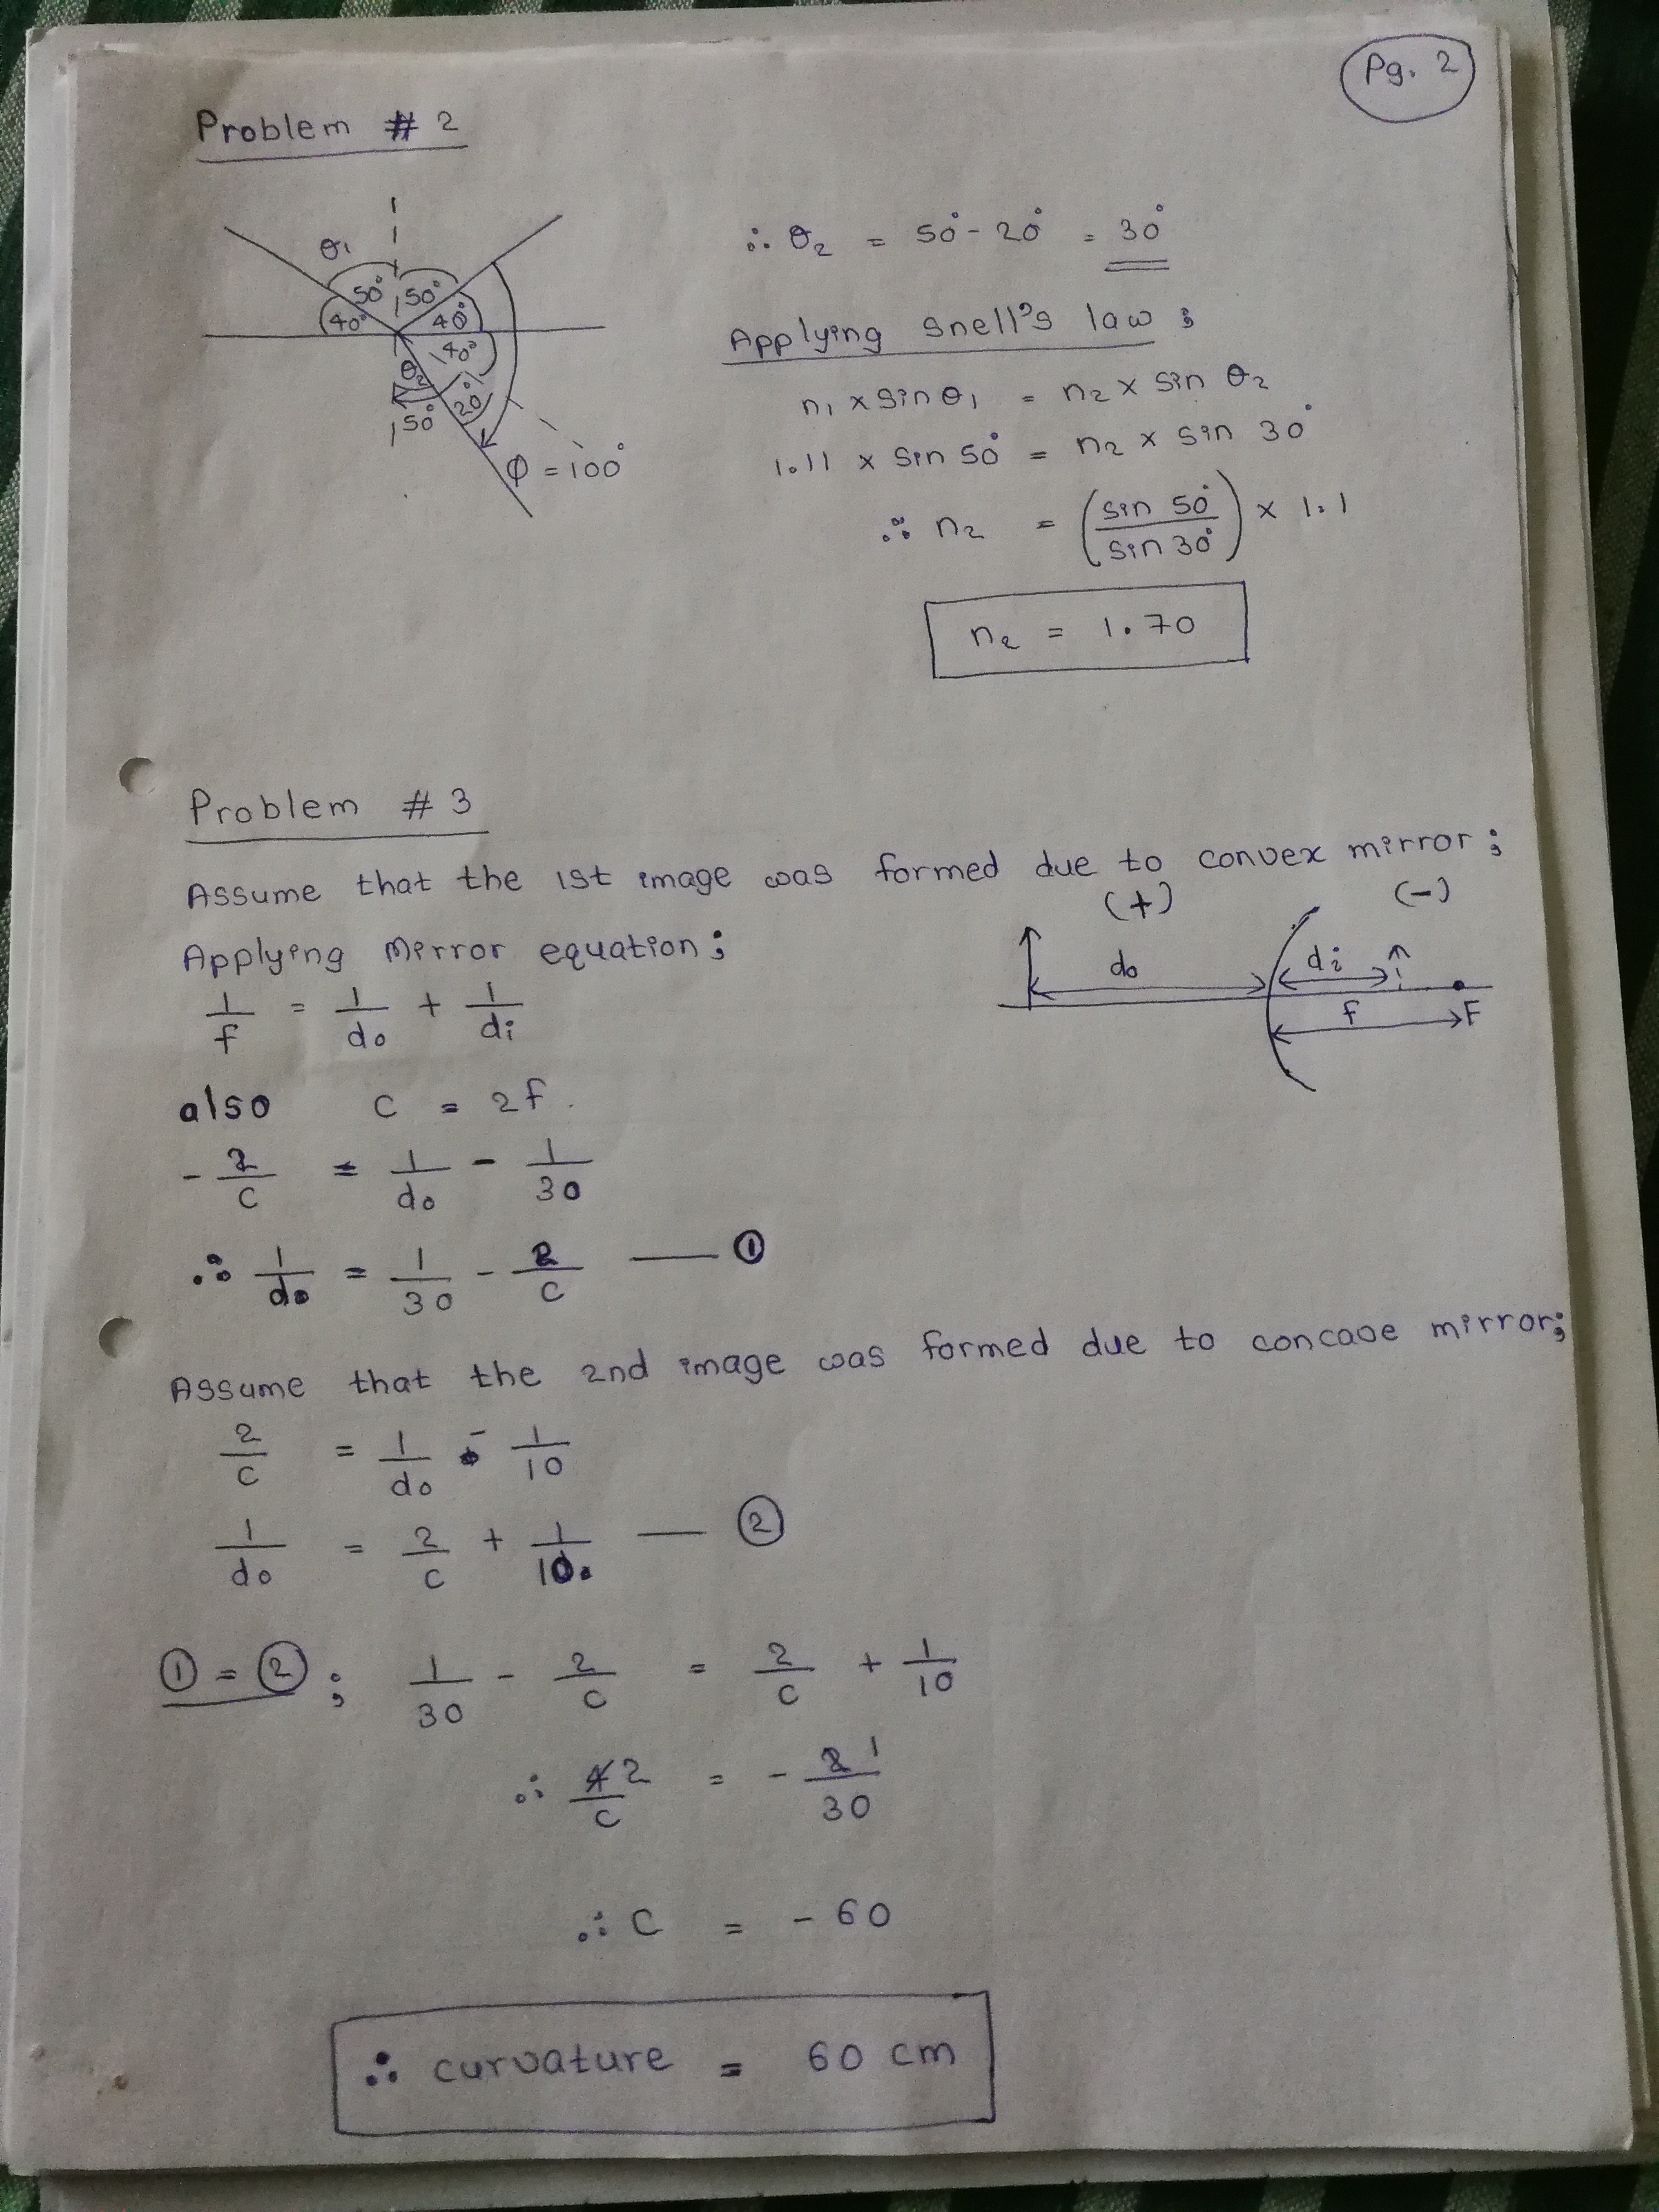 Pg. 2
Problem # 2
θ1
50° 50°
40° 40°
40°
θ2
20°
50°
φ = 100°
∴ θ2 = 50° - 20° = 30°
Applying Snell's law ;
n1 × sin θ1 = n2 × sin θ2
1.11 × sin 50° = n2 × sin 30°
∴ n2 = (sin 50° / sin 30°) × 1.1
n2 = 1.70
Problem # 3
Assume that the 1st image was formed due to convex mirror ;
(+) (-)
do di
f F
Applying Mirror equation ;
1/f = 1/do + 1/di
also C = 2f.
- 2/C = 1/do - 1/30
∴ 1/do = 1/30 - 2/C — ①
Assume that the 2nd image was formed due to concave mirror ;
2/C = 1/do - 1/10
1/do = 2/C + 1/10 — ②
① = ② ; 1/30 - 2/C = 2/C + 1/10
∴ 4 2/C = - 2 1/30
∴ C = - 60
∴ curvature = 60 cm